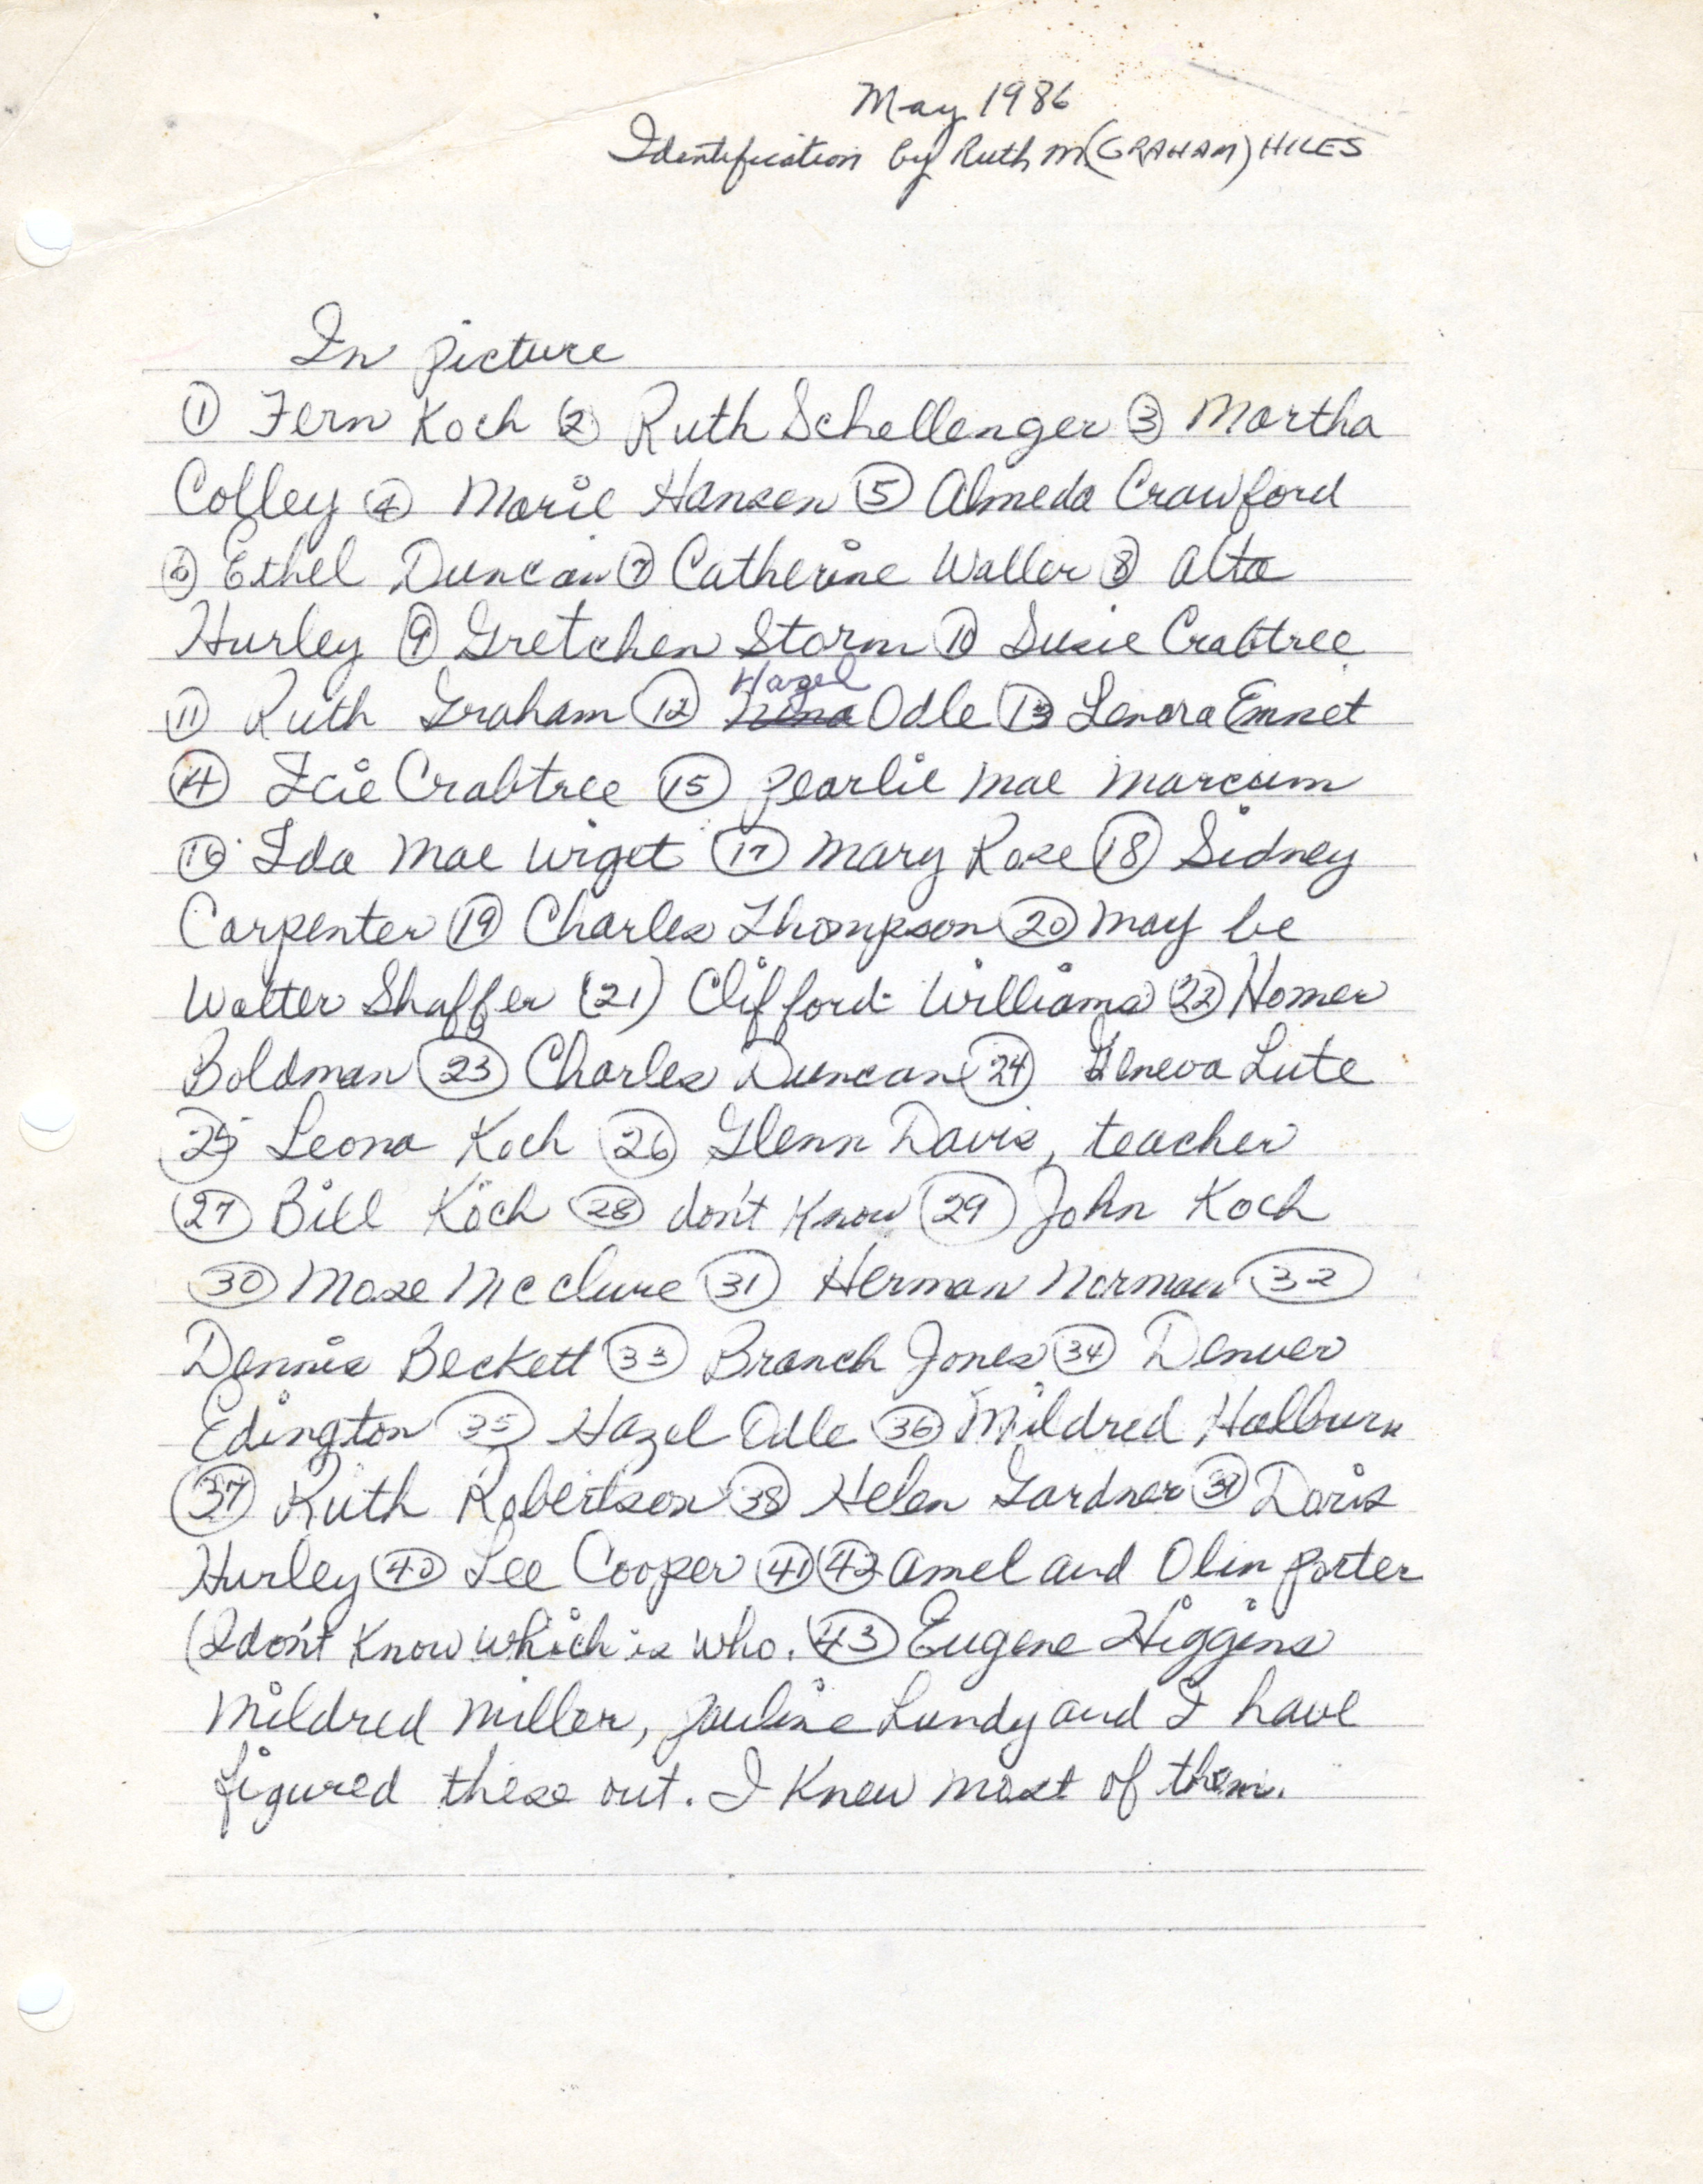 May 1986
Identification by Ruth M (GRAHAM) HILES
In picture
① Fern Koch ② Ruth Schellenger ③ Martha
Colley ④ Marie Hansen ⑤ Almeda Crawford
⑥ Ethel Duncan ⑦ Catherine Waller ⑧ Alta
Hurley ⑨ Gretchen Storm ⑩ Susie Crabtree
Hazel
⑪ Ruth Graham ⑫ Nina Odle ⑬ Lenora Emnet
⑭ Icie Crabtree ⑮ Pearlie Mae Marcum
⑯ Ida Mae Wiget ⑰ Mary Rose ⑱ Sidney
Carpenter ⑲ Charles Thompson ⑳ May be
Walter Shaffer (21) Clifford Williams ㉒ Homer
Boldman ㉓ Charles Duncan ㉔ Geneva Lute
㉕ Leona Koch ㉖ Glenn Davis, teacher
㉗ Bill Koch ㉘ don't know ㉙ John Koch
㉚ Mose McClure ㉛ Herman Norman ㉜
Dennis Beckett ㉝ Branch Jones ㉞ Denver
Edington ㉟ Hazel Odle ㊱ Mildred Halburn
㊲ Ruth Robertson ㊳ Helen Gardner ㊴ Doris
Hurley ㊵ Lee Cooper ㊶ ㊷ Amel and Olin Porter
(I don't know which is who. ㊸ Eugene Higgins
Mildred Miller, Pauline Lundy and I have
figured these out. I knew most of them.